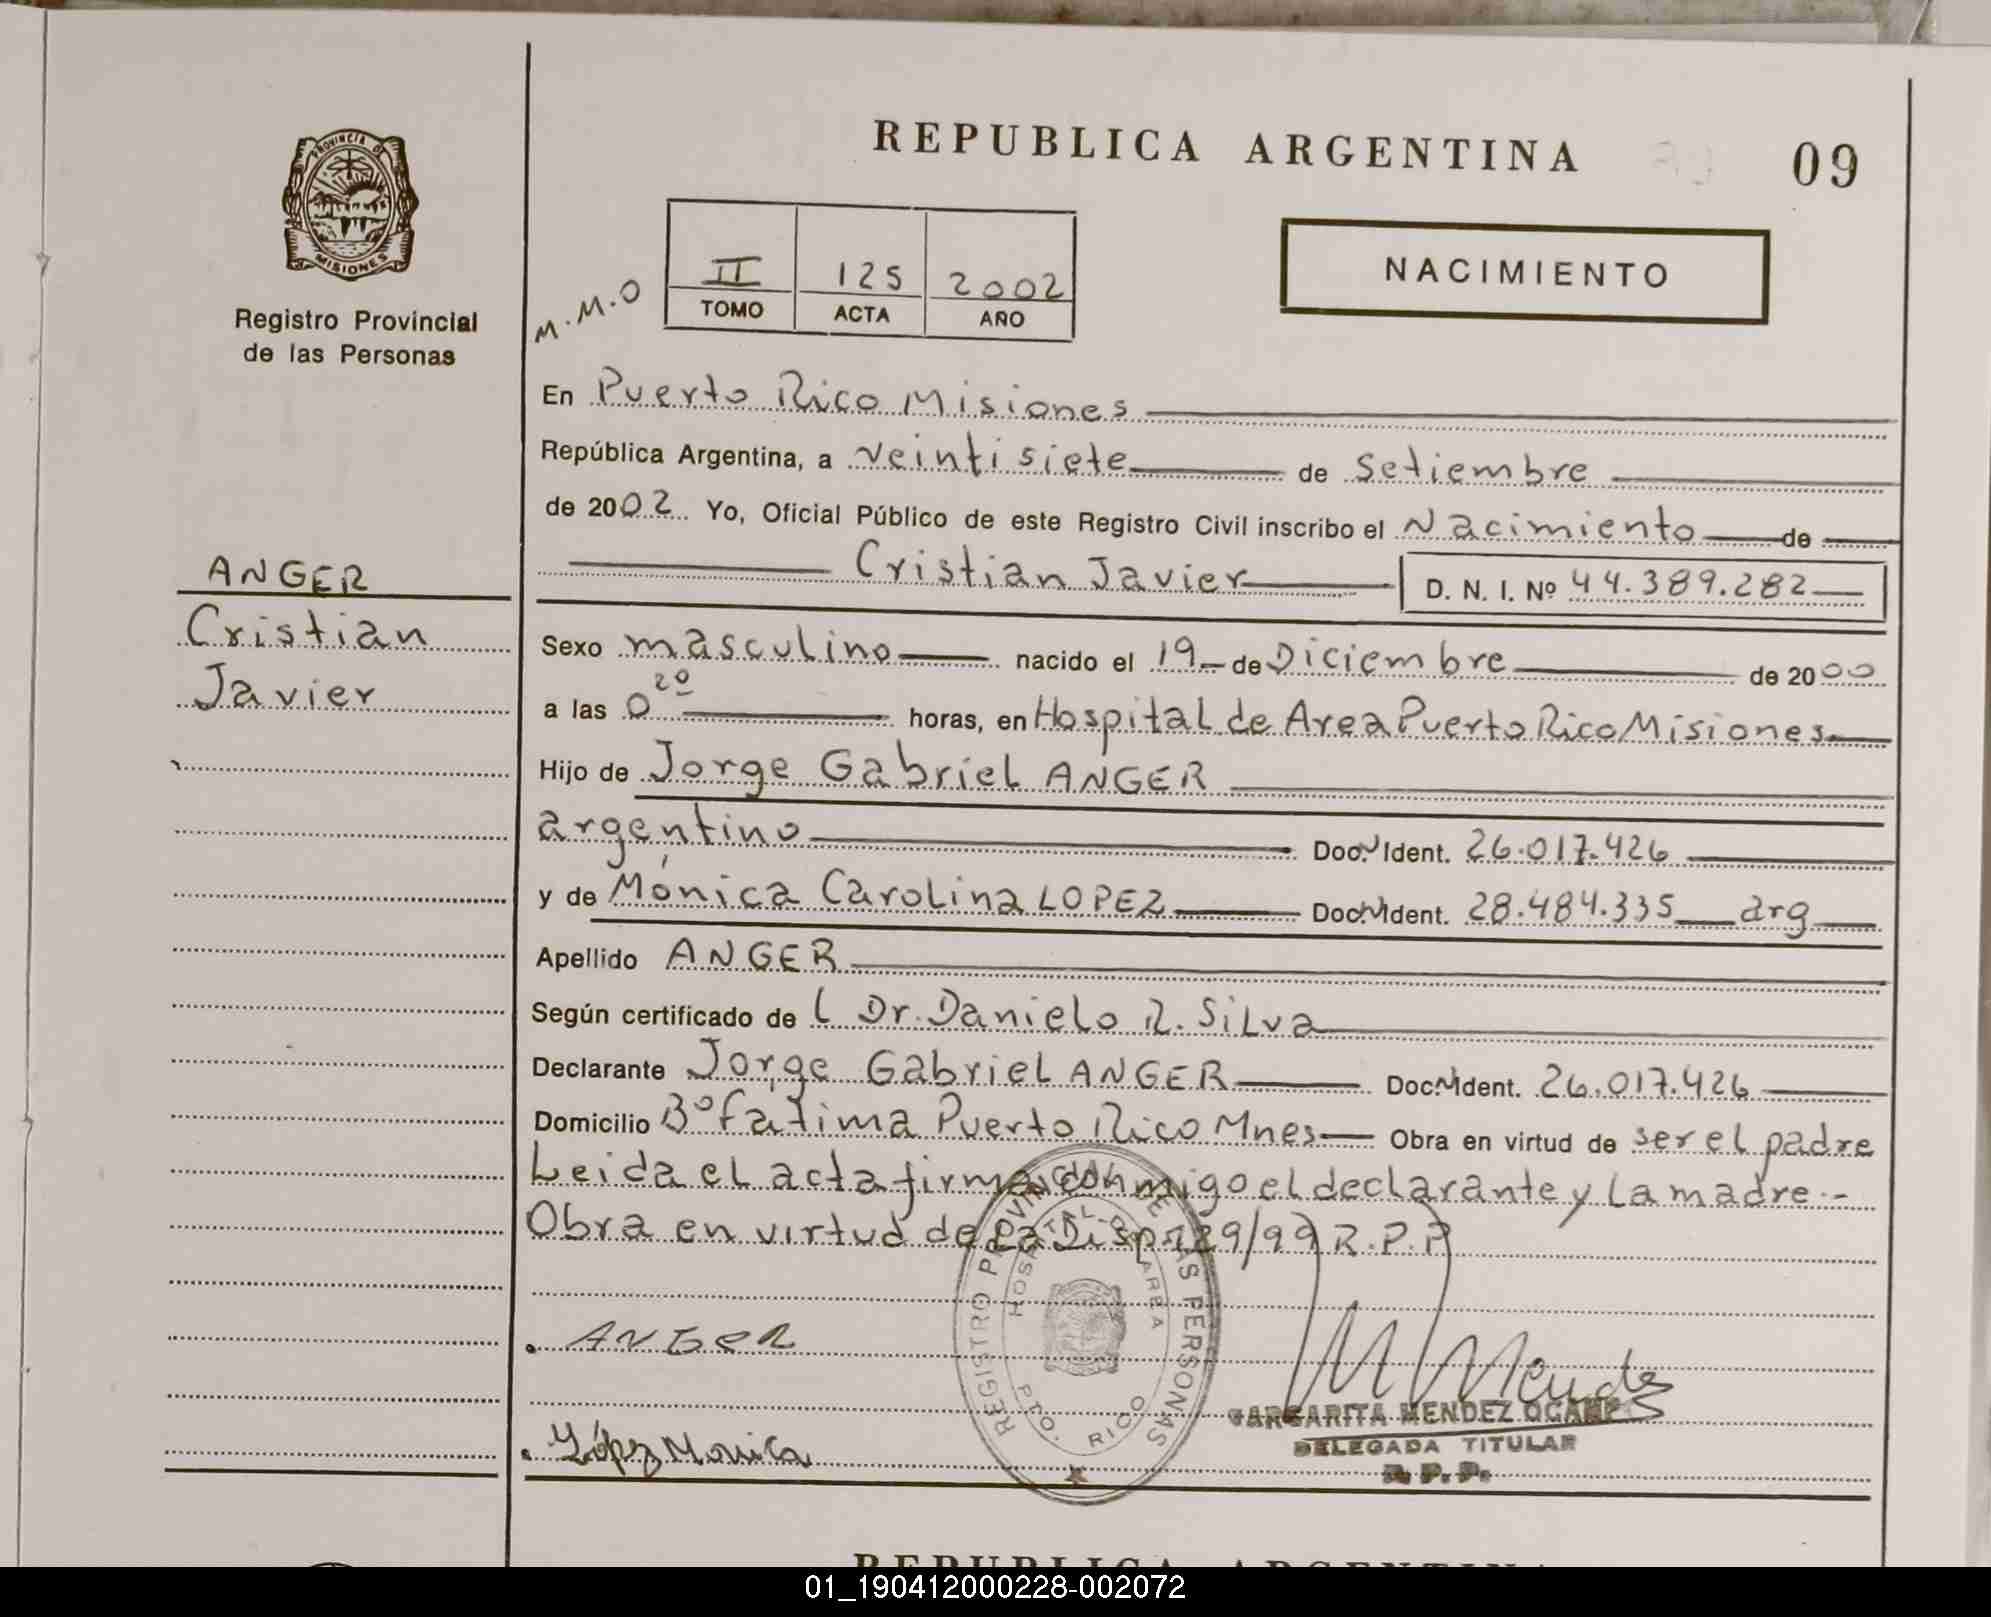 REPUBLICA ARGENTINA
09
PROVINCIA DE
MISIONES
Registro Provincial
de las Personas
M.M.O
II 125 2002
TOMO ACTA AÑO
NACIMIENTO
En Puerto Rico Misiones
República Argentina, a veintisiete de Setiembre
de 2002 Yo, Oficial Público de este Registro Civil inscribo el Nacimiento de
Cristian Javier D. N. I. Nº 44.389.282
ANGER
Cristian
Javier
Sexo masculino nacido el 19 de Diciembre de 2000
a las 0 20 horas, en Hospital de Area Puerto Rico Misiones
Hijo de Jorge Gabriel ANGER
argentino Doc. Ident. 26.017.426
y de Mónica Carolina LOPEZ Doc. Ident. 28.484.335 arg
Apellido ANGER
Según certificado de l Dr. Danielo R. Silva
Declarante Jorge Gabriel ANGER Doc. Ident. 26.017.426
Domicilio Bº Fátima Puerto Rico Mnes Obra en virtud de ser el padre
Leida el acta firman conmigo el declarante y la madre.-
Obra en virtud de la Disp. 129/99 R.P.P
REGISTRO PROVINCIAL DE LAS PERSONAS
HOSPITAL
RICO
ANGER
López Monica
M Mendez
MARGARITA MENDEZ OCAMPO
DELEGADA TITULAR
R. P. P.
REPUBLICA ARGENTINA
01_190412000228-002072